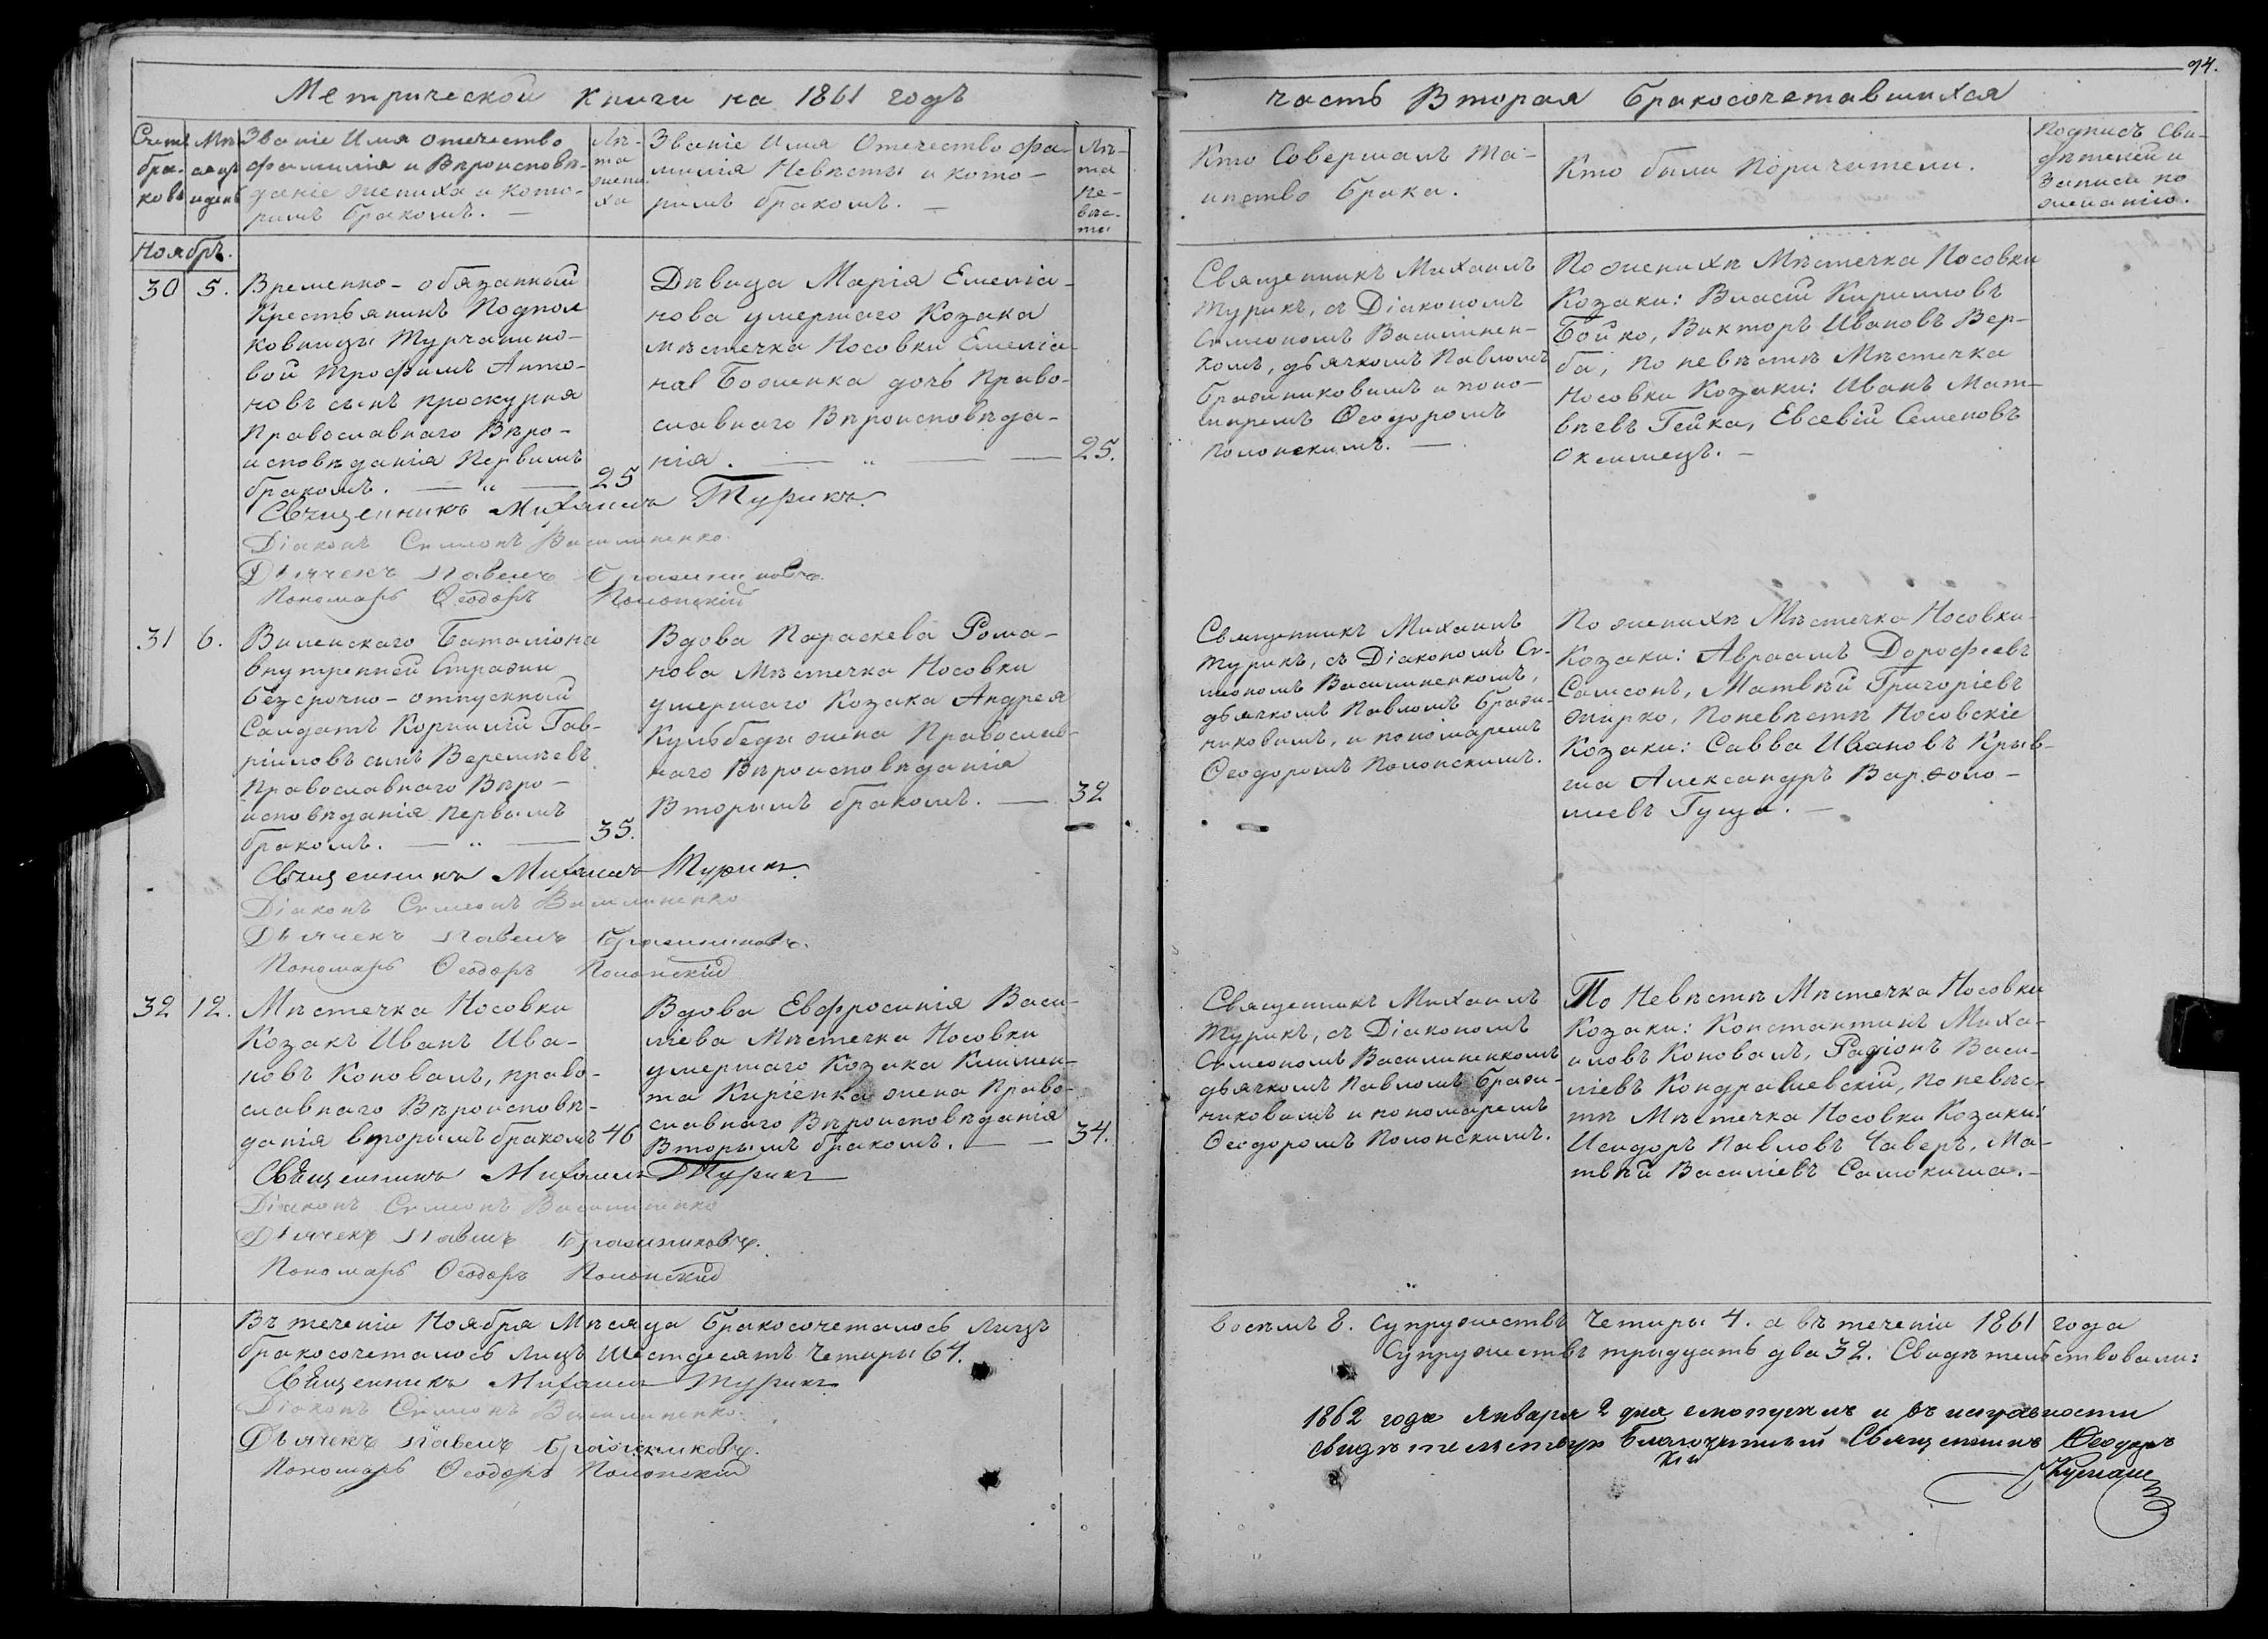 94.
Метрической книги на 1861 годъ
часть Вторая бракосочетавшихся
Счетъ
бра-
ковъ
Мѣ-
сяцъ
и день
Званіе Имя отечество
фамилія и Вѣроисповѣ-
даніе жениха и кото-
римъ бракомъ. —
Лѣ-
та
жени-
ха
Званіе Имя Отечество фа-
милія Невѣсты и кото-
римъ бракомъ. —
Лѣ-
та
не-
вѣс-
ты
Кто Совершалъ та-
инство брака.
Кто были Поричители.
Подпись Сви-
дѣтелей и
Записи по
желанію.
Ноябрь.
30 5.
Временно-обязанный
Крестьянинъ Подпол
ковницы Турчанино-
вой Трофимъ Анто-
новъ сынъ Проскурня
Православнаго Вѣро-
исповѣданія Первымъ
бракомъ. — „ — 25
Дѣвица Марія Емеліа-
нова умершаго Козака
мѣстечка Носовки Емеліа-
на Боженка дочь Право-
славнаго Вѣроисповѣда-
нія. — „ — 25.
Священникъ Михаилъ
Турикъ, съ Діакономъ
Симеономъ Василинен-
комъ, дьячкомъ Павломъ
Бражниковимъ и поно-
маремъ Ѳеодоромъ
Полонскимъ. —
По женихѣ Мѣстечка Носовки
Козаки: Власій Кирилловъ
Бойко, Викторъ Ивановъ Вер-
ба, По невѣстѣ Мѣстечка
Носовки Козаки: Иванъ Мат-
вѣевъ Гейка, Евсевій Семеновъ
Оксимецъ. —
Священникъ Михаилъ Турикъ.
Діаконъ Симеонъ Василиненко.
Дьячекъ Павелъ Бражниковъ.
Пономарь Ѳеодоръ Полонскій
31 6.
Виленскаго Баталіона
внутренней Стражи
безсрочно-отпускный
Салдатъ Корнилій Гав-
ріиловъ сынъ Веремѣевъ
Православнаго Вѣро-
исповѣданія Первымъ
бракомъ. — „ — 35.
Вдова Параскева Рома-
нова Мѣстечка Носовки
умершаго Козака Андрея
Кульбеды жена Православ-
наго Вѣроисповѣданія
Вторымъ бракомъ. — 32
Священникъ Михаилъ
Турикъ, съ Діакономъ Си-
меономъ Василиненкомъ,
дьячкомъ Павломъ Браж-
никовимъ, и пономаремъ
Ѳеодоромъ Полонскимъ.
По женихѣ Мѣстечка Носовки
Козаки: Авраамъ Дорофеевъ
Самсонъ, Матвѣй Григоріевъ
Жирко, По невѣстѣ Носовскіе
Козаки: Савва Ивановъ Крыв-
ша Александръ Варѳоло-
меевъ Гуща. —
Священникъ Михаилъ Турикъ.
Діаконъ Симеонъ Василиненко
Дьячекъ Павелъ Бражниковъ.
Пономарь Ѳеодоръ Полонскій
32 12.
Мѣстечка Носовки
Козакъ Иванъ Ива-
новъ Коновалъ, право-
славнаго Вѣроисповѣ-
данія вторымъ бракомъ 46
Вдова Евфросинія Васи-
ліева Мѣстечка Носовки
умершаго Козака Климен-
та Кириенка жена Право-
славнаго Вѣроисповѣданія
Вторымъ бракомъ. — — 34.
Священникъ Михаилъ
Турикъ, съ Діакономъ
Симеономъ Василиненкомъ
дьячкомъ Павломъ Браж-
никовимъ и пономаремъ
Ѳеодоромъ Полонскимъ.
По Невѣстѣ Мѣстечка Носовки
Козаки: Константинъ Миха-
иловъ Коновалъ, Радіонъ Васи-
ліевъ Кондрашевскій, по невѣс-
тѣ Мѣстечка Носовки Козаки:
Исидоръ Павловъ Чаверъ, Ма-
твѣй Василіевъ Самокиша. —
Священникъ Михаилъ Турикъ
Діаконъ Симеонъ Василиненко
Дьячекъ Павелъ Бражниковъ.
Пономарь Ѳеодоръ Полонскій
Въ теченіи Ноября Мѣсяца бракосочеталось Лицъ
восемъ 8. Супружествъ Четыри 4. а въ теченіи 1861 года
бракосочеталось лицъ Шестдесятъ Четыри 64.
Супружествъ тридцать два 32. Свидѣтельствовали:
Священникъ Михаилъ Турикъ
Діаконъ Симеонъ Василиненко.
Дьячекъ Павелъ Бражниковъ.
Пономарь Ѳеодоръ Полонскій
1862 года Января 2 дня и въ исправности
свидѣтельствую Благочинный Священникъ Ѳеодоръ